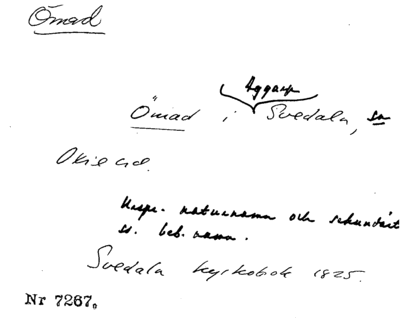 Ömad
Aggarp
Ömad i Svedala, sn
Oxie hd.
Urspr. naturnamn och sekundärt
ss. beb.namn.
Svedala kyrkobok 1825.
Nr 7267.